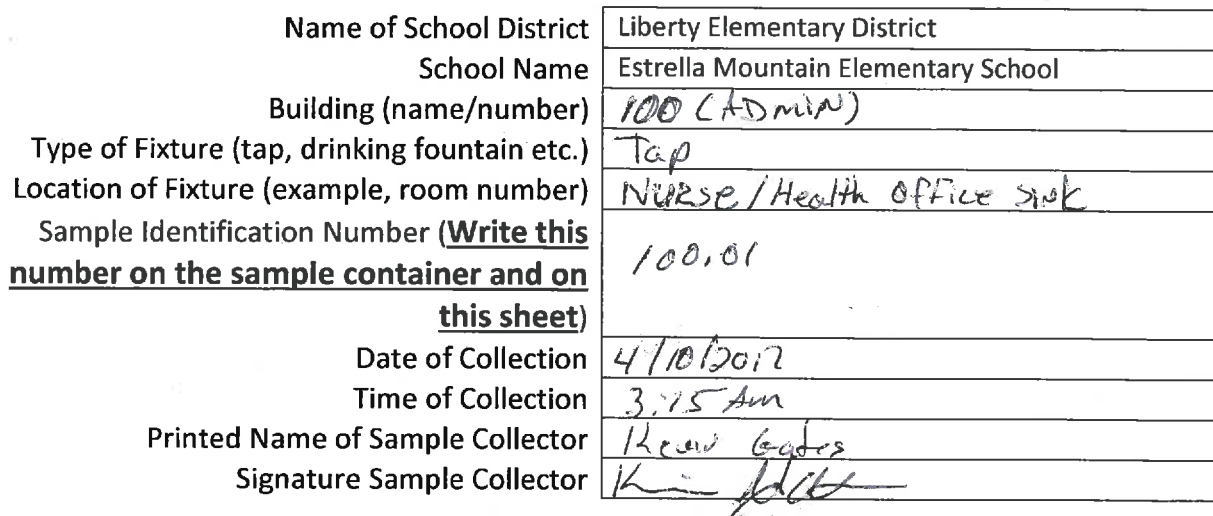 Name of School District Liberty Elementary District
School Name Estrella Mountain Elementary School
Building (name/number) 100 (ADMIN)
Type of Fixture (tap, drinking fountain etc.) Tap
Location of Fixture (example, room number) Nurse/Health Office Sink
Sample Identification Number (Write this
number on the sample container and on
this sheet) 100.01
Date of Collection 4/10/2017
Time of Collection 3:15 Am
Printed Name of Sample Collector Gates
Signature Sample Collector